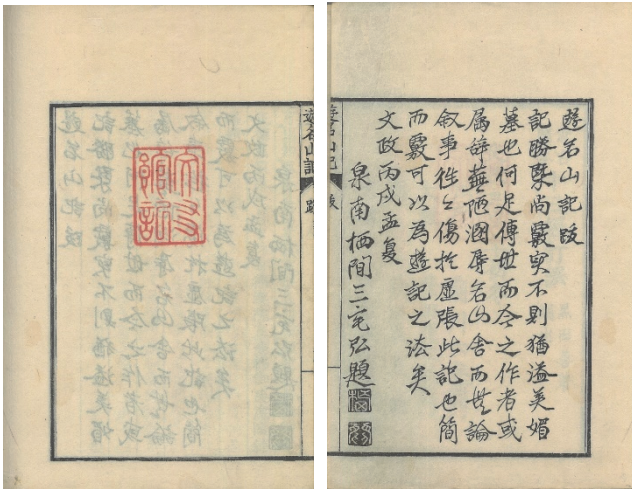 遊名山記跋
記勝槩尚覈実不則猶溢美媚
墓也何足傳世而今之作者或
属辞蕪陋溷辱名山舎而無論
叙事徃々傷於虚張此記也簡
而覈可以為遊記之法矣
文政丙戌孟夏
泉南栖間三宅弘題
遊名山記 跋
遊名山記 跋